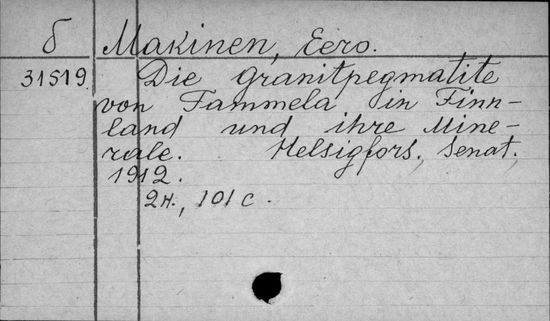 б Makinen, Eero.
31519. Die granitpegmatite
von Tammela in Finn-
land und ihre Mine-
rale. Helsigfors, Senat,
1912.
2н., 101 с.